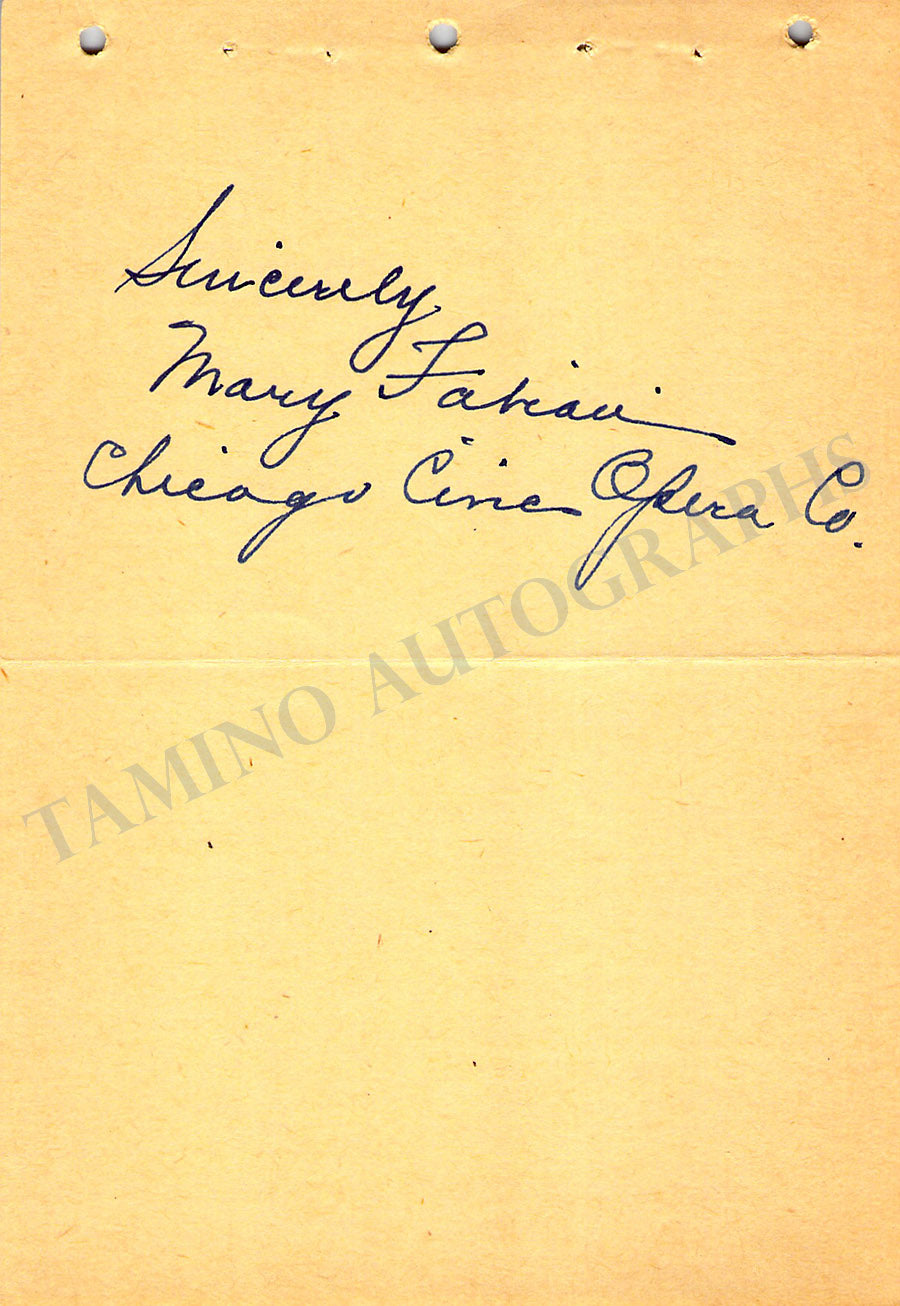 Sincerely
Mary Fabian
Chicago Civic Opera Co.
TAMINO AUTOGRAPHS